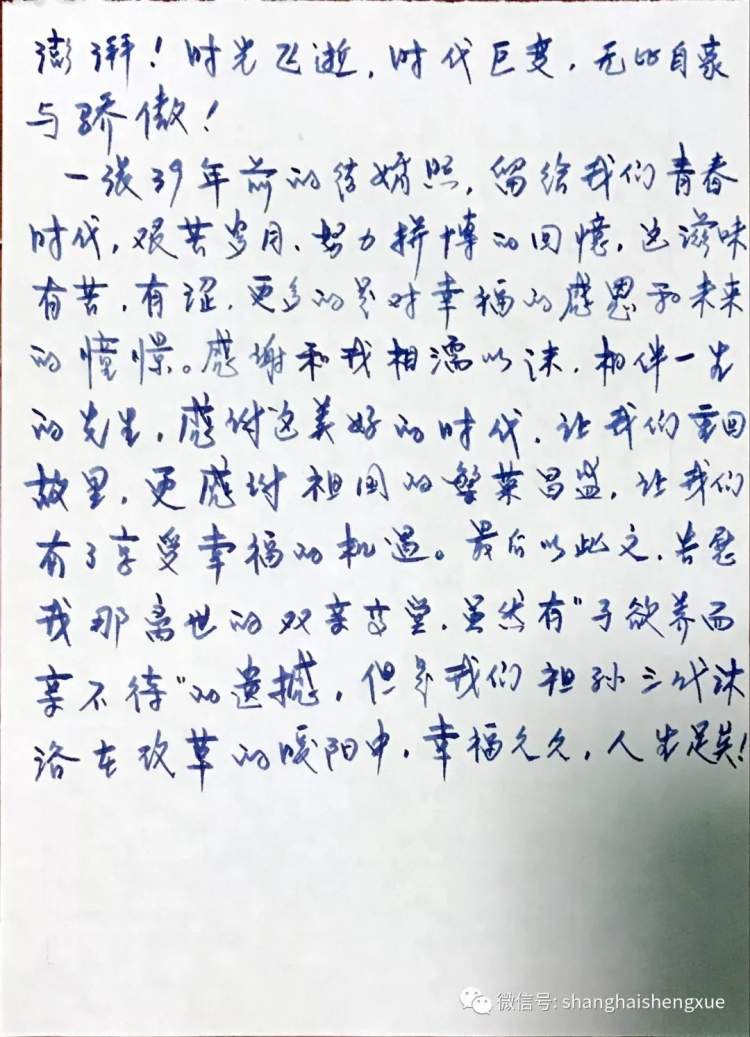 澎湃！时光飞逝，时代巨变，无比自豪
与骄傲！
一张39年前的结婚照，留给我们青春
时代，艰苦岁月、努力拼博的回憶，这滋味
有苦，有涩，更多的是对幸福的感恩和未来
的憧憬。感谢和我相濡以沫，相伴一生
的先生，感谢这美好的时代，让我们重回
故里，更感谢祖国的繁荣昌盛，让我们
有了享受幸福的机遇。最后以此文，告慰
我那离世的双亲高堂，虽然有"子欲养而
亲不待"的遗撼，但是我们祖孙三代沐
浴在改革的暖阳中，幸福久久，人生足矣！
微信号: shanghaishengxue